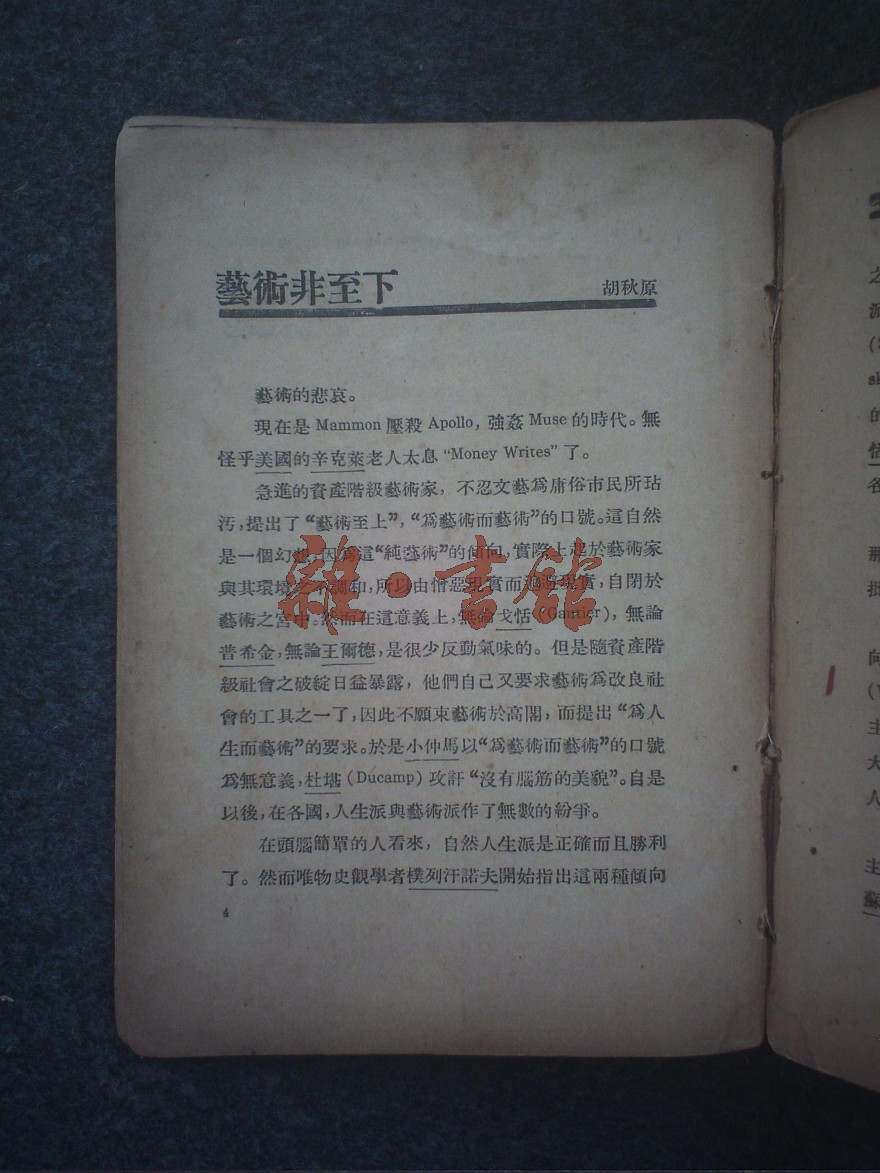 藝術非至下
胡秋原
藝術的悲哀。
現在是 Mammon 壓殺 Apollo, 強姦 Muse 的時代。無
怪乎美國的辛克萊老人太息 “Money Writes” 了。
急進的資產階級藝術家, 不忍文藝爲庸俗市民所玷
汚, 提出了“藝術至上”, “爲藝術而藝術”的口號。這自然
是一個幻想, 因爲這“純藝術”的傾向, 實際上起於藝術家
與其環境之不調和, 所以由憎惡現實而逃避現實, 自閉於
藝術之宮中。然而在這意義上, 無論戈恬 (Gautier), 無論
普希金, 無論王爾德, 是很少反動氣味的。但是隨資產階
級社會之破綻日益暴露, 他們自己又要求藝術爲改良社
會的工具之一了, 因此不願束藝術於高閣, 而提出 “爲人
生而藝術”的要求。於是小仲馬以“爲藝術而藝術”的口號
爲無意義, 杜堪 (Ducamp) 攻訐 “沒有腦筋的美貌”。自是
以後, 在各國, 人生派與藝術派作了無數的紛爭。
在頭腦簡單的人看來, 自然人生派是正確而且勝利
了。然而唯物史觀學者樸列汗諾夫開始指出這兩種傾向
4
雜·書館